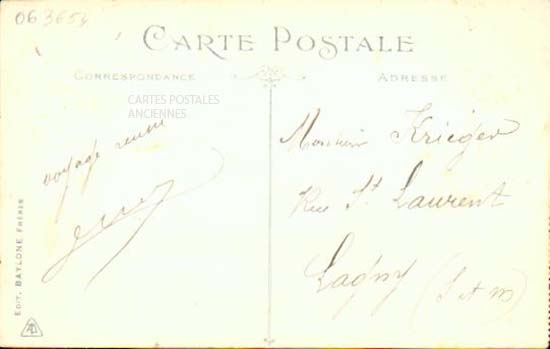 063654
CARTE POSTALE
CORRESPONDANCE
ADRESSE
CARTES POSTALES
ANCIENNES
voyage réussi
Monsieur Krieger
Rue St Laurent
Lagny (S et M)
EDIT. BAYLONE FRÈRES